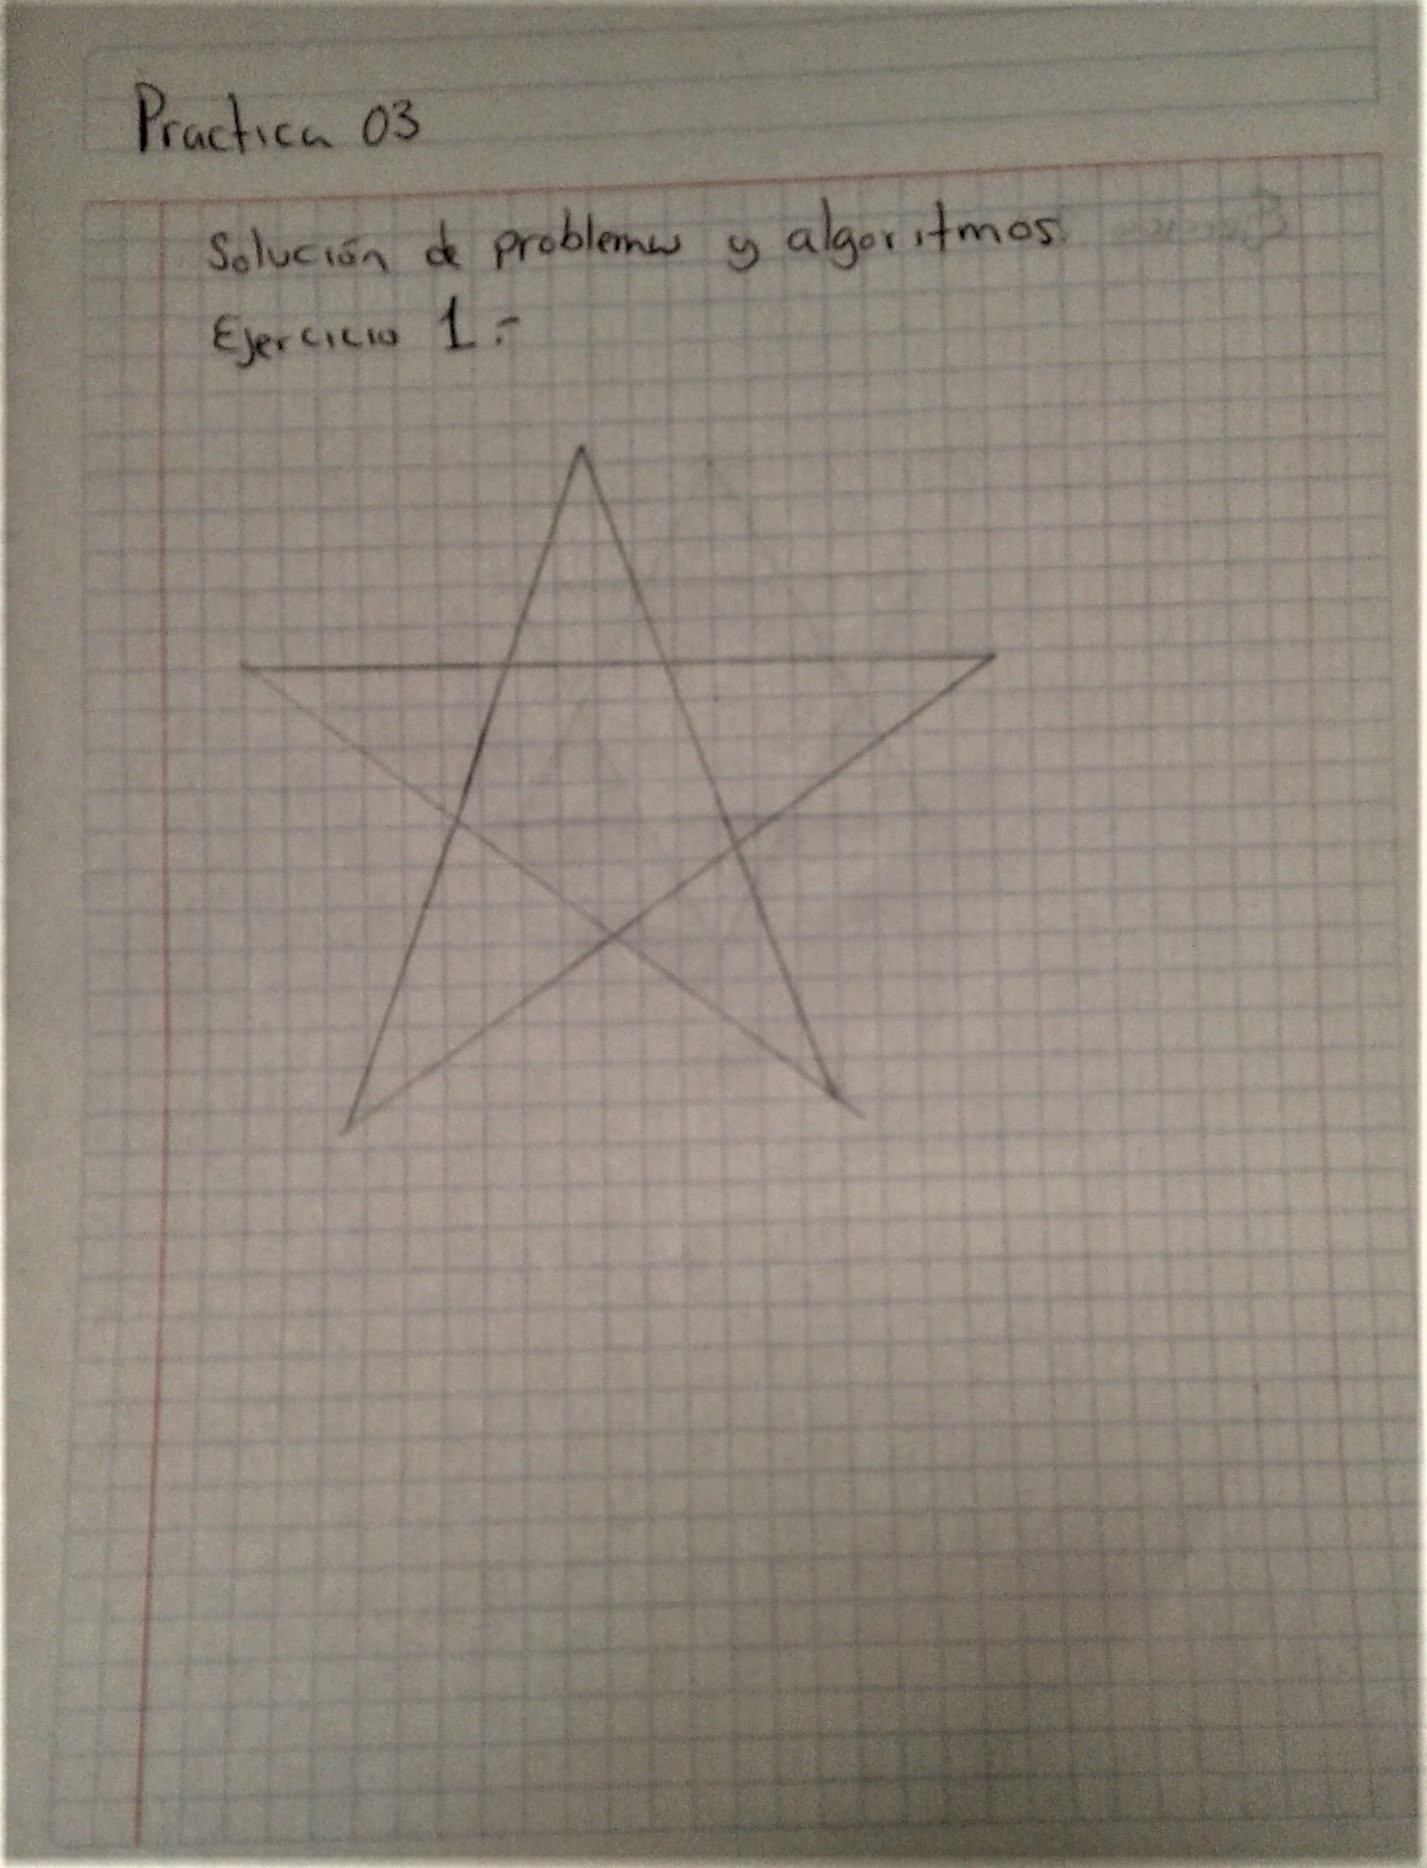 Practica 03
Solución de problemas y algoritmos.
Ejercicio 1.-